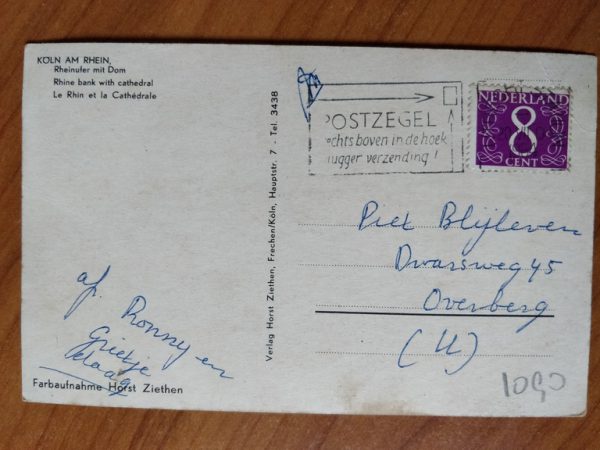 KÖLN AM RHEIN,
Rheinufer mit Dom
Rhine bank with cathedral
Le Rhin et la Cathédrale
Verlag Horst Ziethen, Frechen/Köln, Hauptstr. 7 · Tel. 3438
POSTZEGEL
echts boven in de hoek
lugger verzending!
NEDERLAND
8
CENT
Piet Blijleven
Dwarsweg 45
Overberg
(U)
af. Ronny en
Grietje
Farbaufnahme Horst Ziethen